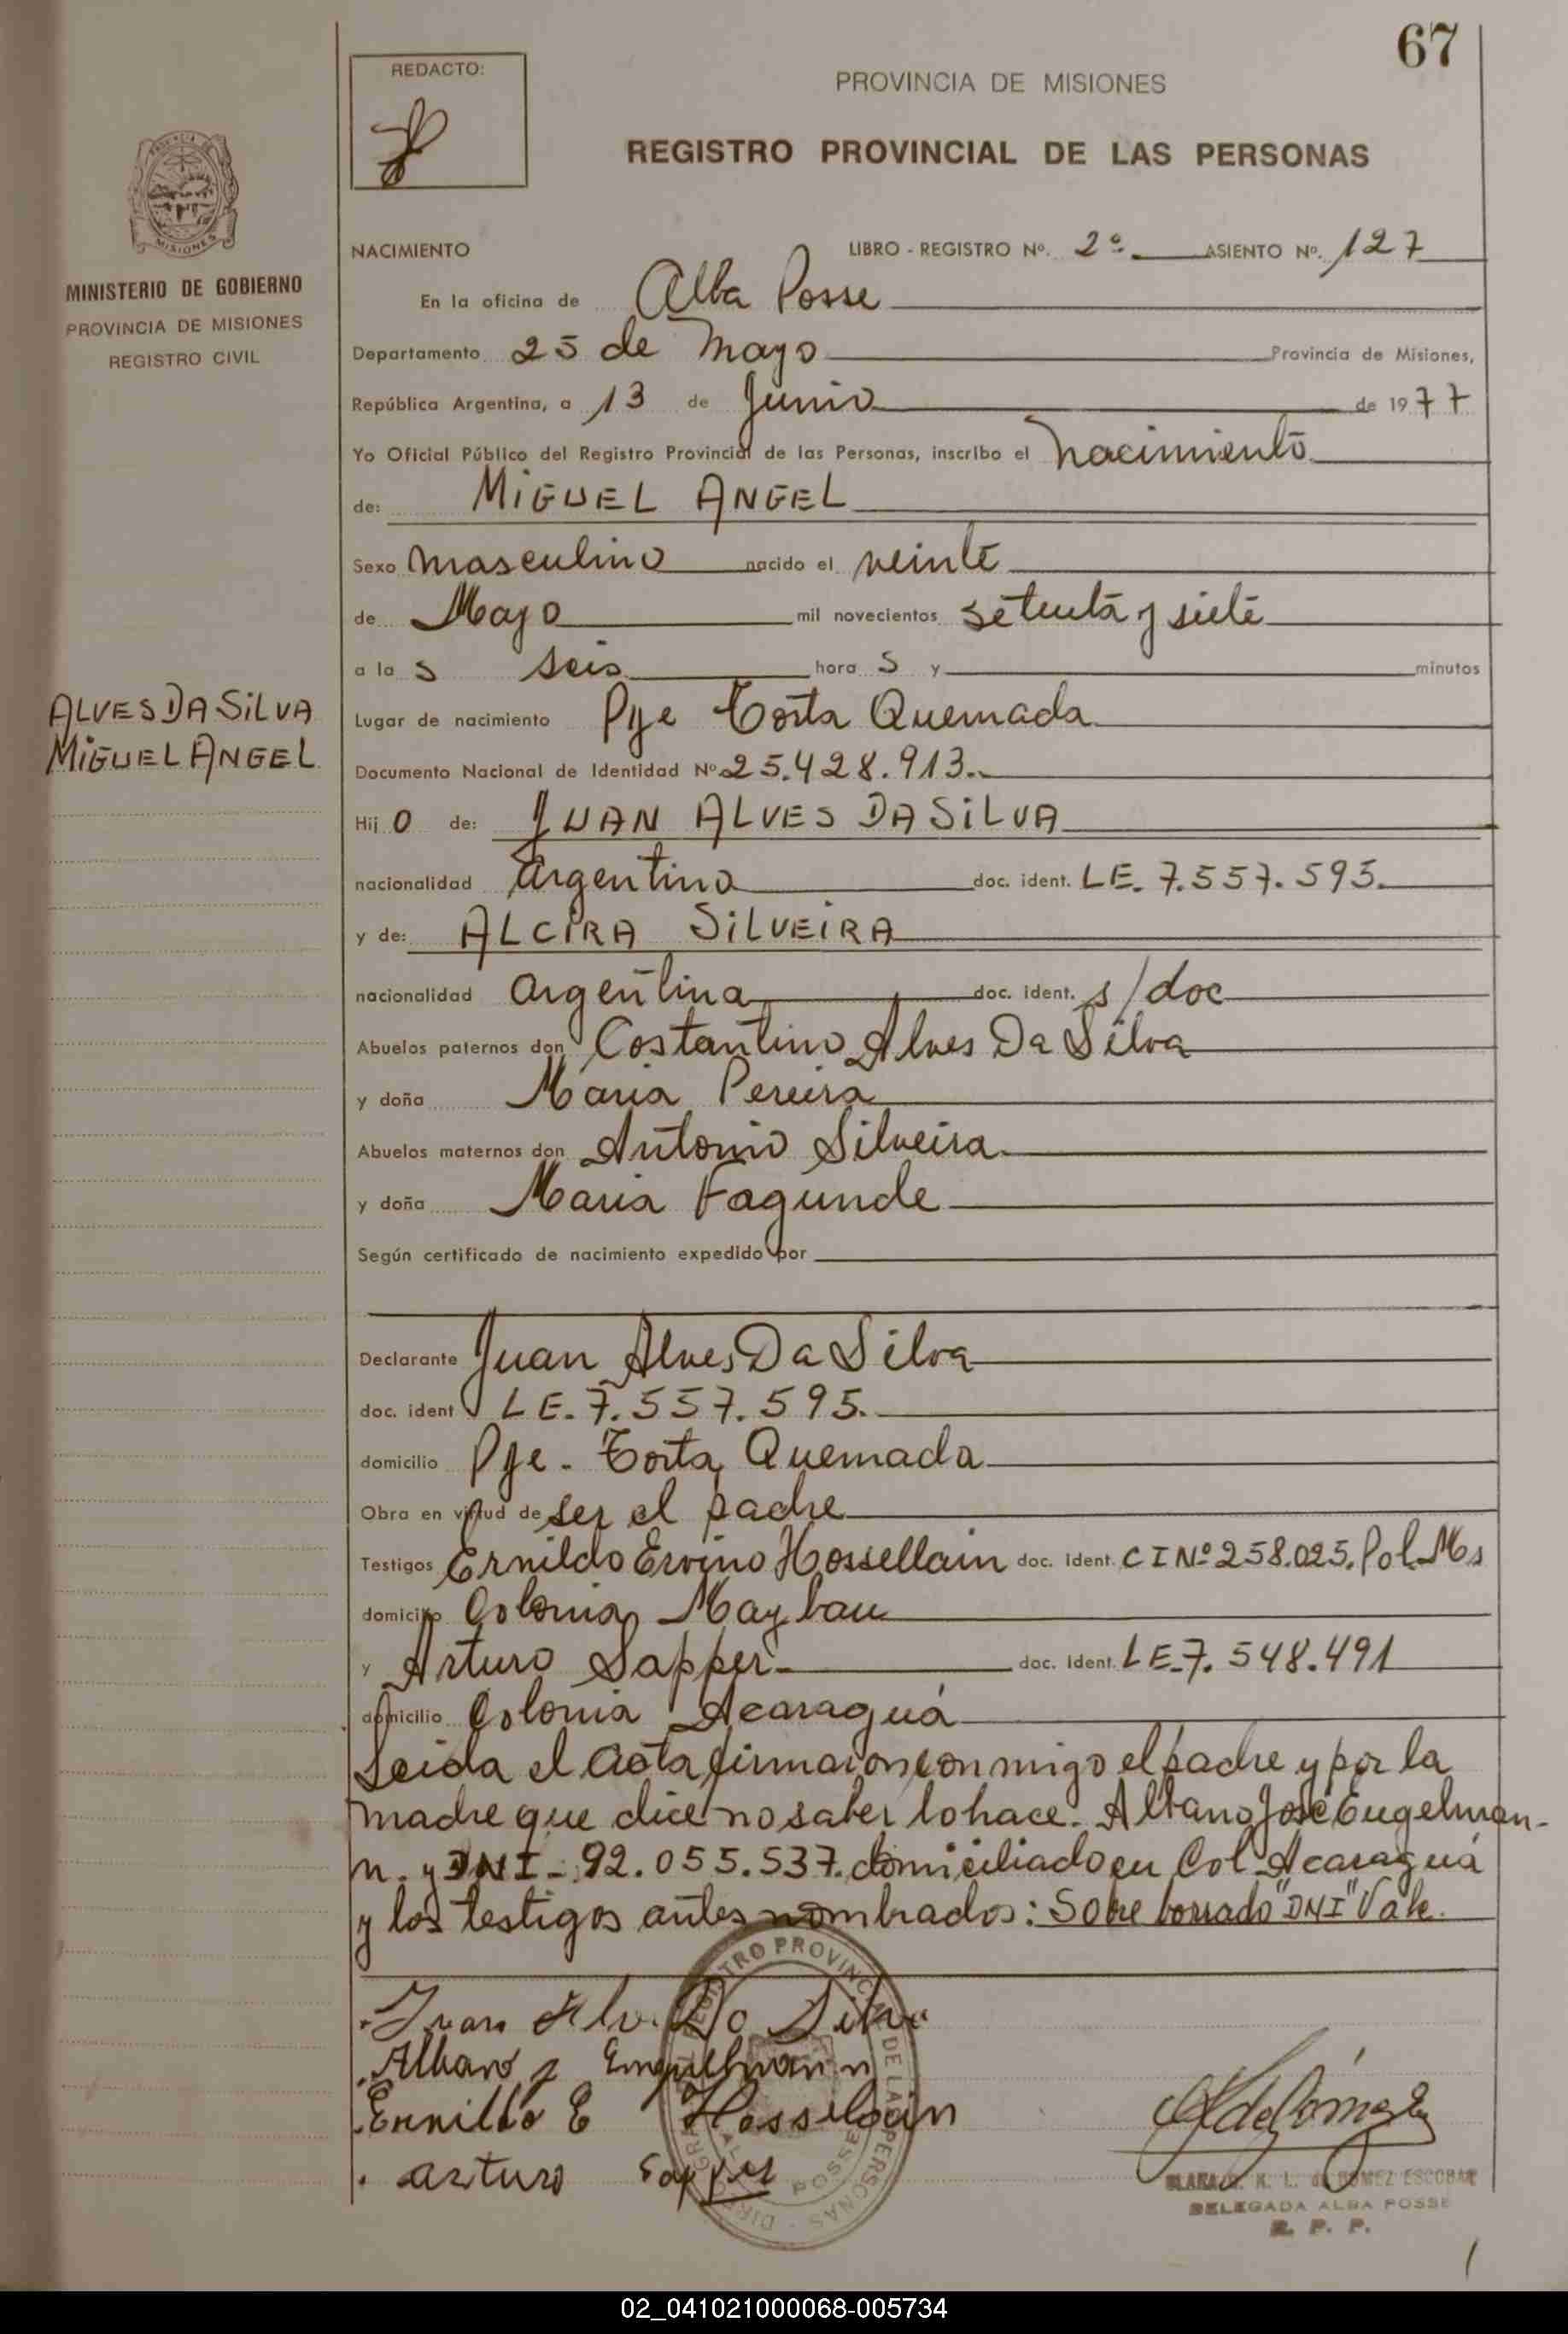 67
REDACTO:
PROVINCIA DE MISIONES
REGISTRO PROVINCIAL DE LAS PERSONAS
MISIONES
MINISTERIO DE GOBIERNO
PROVINCIA DE MISIONES
REGISTRO CIVIL
NACIMIENTO LIBRO - REGISTRO Nº. 2º. ASIENTO Nº. 127
En la oficina de Alba Posse
Departamento 25 de Mayo Provincia de Misiones,
República Argentina, a 13 de Junio de 1977
Yo Oficial Público del Registro Provincial de las Personas, inscribo el nacimiento
de: MIGUEL ANGEL
Sexo masculino nacido el veinte
de Mayo mil novecientos setenta y siete
a la s seis hora s y minutos
ALVES DA SILVA
MIGUEL ANGEL
Lugar de nacimiento Pje Torta Quemada
Documento Nacional de Identidad Nº 25.428.913.
Hij o de: JUAN ALVES DA SILVA
nacionalidad argentina doc. ident. LE. 7.557.595.
y de: ALCIRA SILVEIRA
nacionalidad argentina doc. ident. s/doc
Abuelos paternos don Costantino Alves Da Silva
y doña Maria Pereira
Abuelos maternos don Antonio Silveira
y doña Maria Fagunde
Según certificado de nacimiento expedido por
Declarante Juan Alves Da Silva
doc. ident LE. 7.557.595.
domicilio Pje. Torta Quemada
Obra en virtud de ser el padre
Testigos Ernildo Ervino Hossellain doc. ident. CI Nº 258.025. Pol. Ms
domicilio Colonia Maybau
y Arturo Sapper doc. ident. LE. 7.548.491
domicilio Colonia Acaraguá
Leida el Acta firmaron conmigo el padre y por la
madre que dice no saber lo hace. Albano José Engelman-
n. y DNI - 92.055.537. domiciliado en Col. Acaraguá
y los testigos antes nombrados: Sobre borrado "DNI" Vale.
Juan Alv. Da Silva
Albano J Engelmann
Ernildo E Hosselain
Arturo Sapper
REGISTRO PROVINCIAL DE LAS PERSONAS
ALBA POSSE
K. L. de GOMEZ ESCOBAR
DELEGADA ALBA POSSE
R. P. P.
02_041021000068-005734